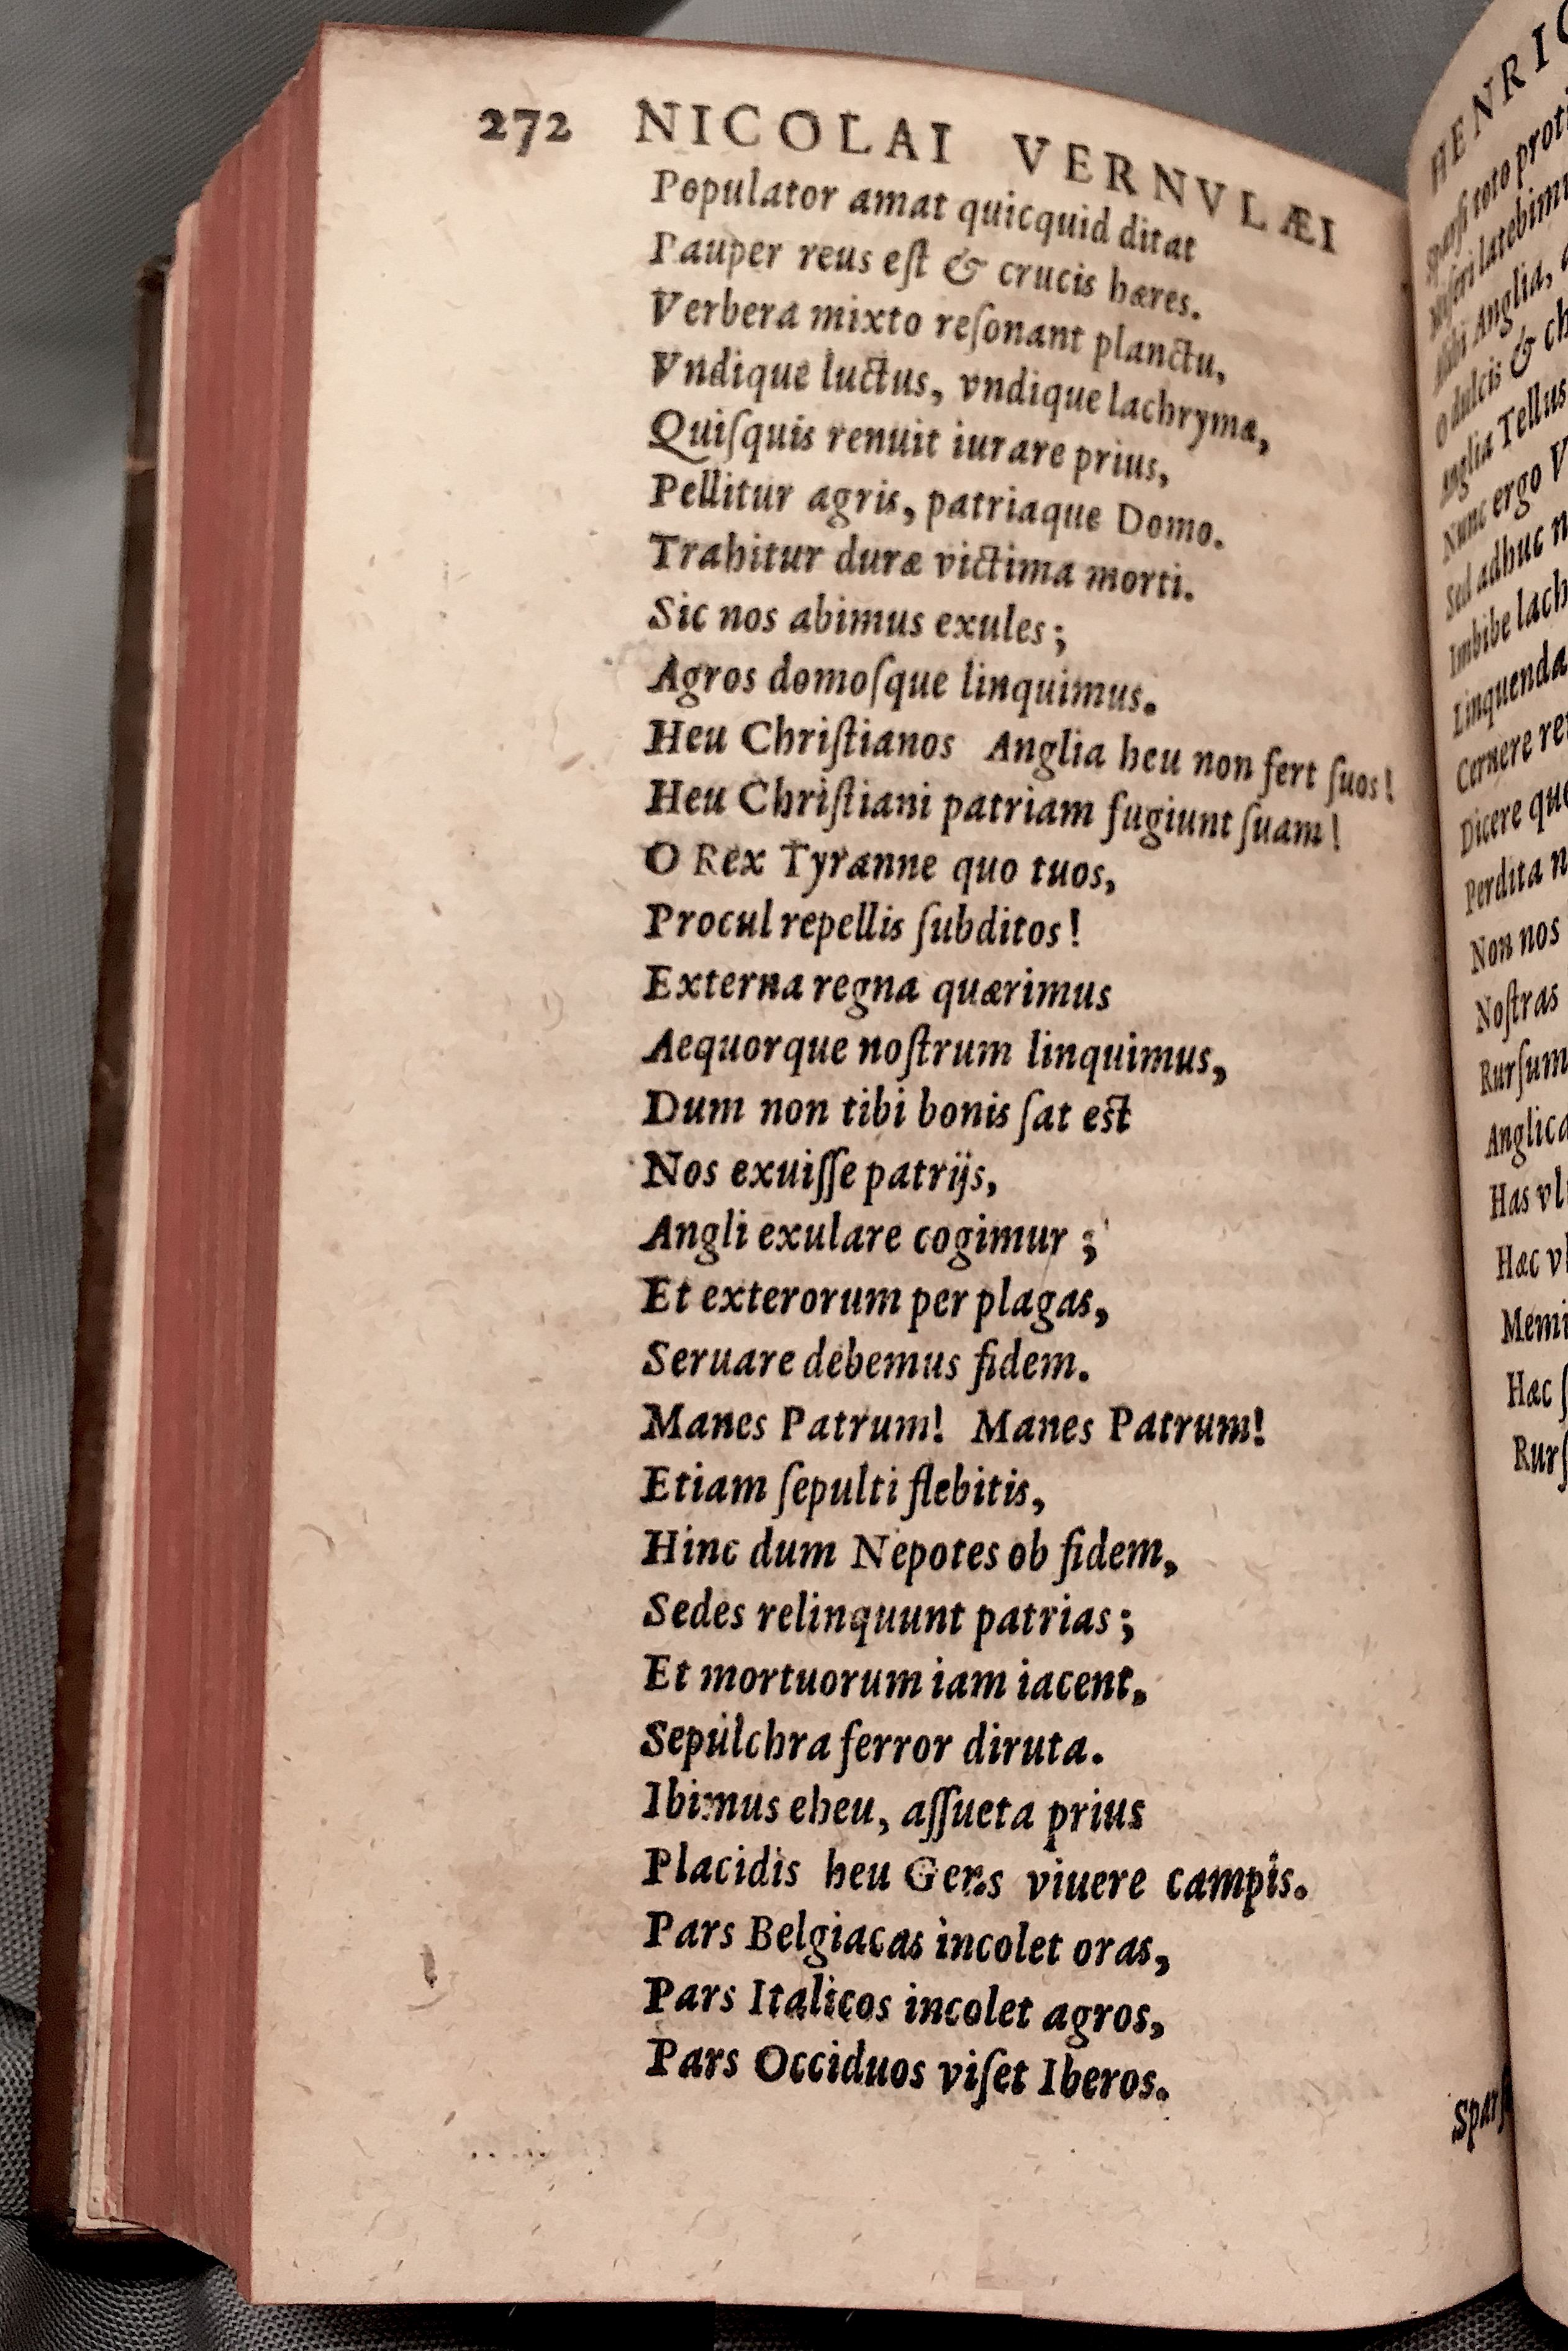 272 NICOLAI VERNVLÆI
Populator amat quicquid ditat
Pauper reus eſt & crucis hæres.
Verbera mixto reſonant planctu,
Vndique luctus, vndique lachrymæ,
Quiſquis renuit iurare prius,
Pellitur agris, patriaque Domo.
Trahitur duræ victima morti.
Sic nos abimus exules;
Agros domoſque linquimus.
Heu Chriſtianos Anglia heu non fert ſuos!
Heu Chriſtiani patriam fugiunt ſuam!
O Rex Tyranne quo tuos,
Procul repellis ſubditos!
Externa regna quærimus
Aequorque noſtrum linquimus,
Dum non tibi bonis ſat est
Nos exuiſſe patrijs,
Angli exulare cogimur;
Et exterorum per plagas,
Seruare debemus fidem.
Manes Patrum! Manes Patrum!
Etiam ſepulti flebitis,
Hinc dum Nepotes ob fidem,
Sedes relinquunt patrias;
Et mortuorum iam iacent,
Sepulchra ferror diruta.
Ibimus eheu, aſſueta prius
Placidis heu Gens viuere campis.
Pars Belgiacas incolet oras,
Pars Italicos incolet agros,
Pars Occiduos viſet Iberos.
Sparſi toto
latebim
Anglia,
O dulcis & ch
Anglia Tellus
Nunc ergo V
Sed adhuc n
Imbibe lach
Linquenda
Cernere re
Dicere qu
Perdita n
Non nos
Noſtras
Rurſum
Anglica
Has vl
Hæc vl
Memi
Hæc ſ
Rurſ